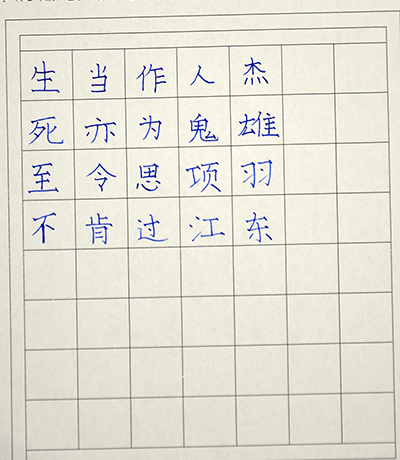 生当作人杰
死亦为鬼雄
至令思项羽
不肯过江东